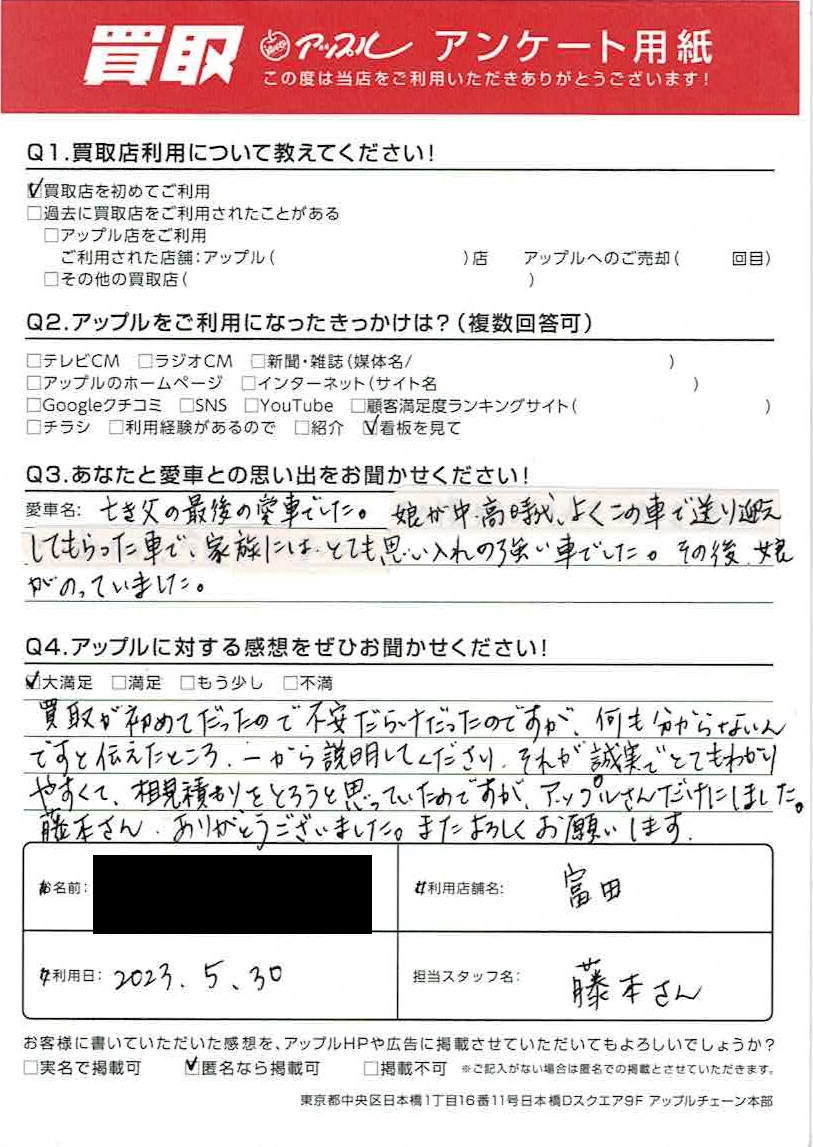 買取 アップル アンケート用紙
この度は当店をご利用いただきありがとうございます!
Q1.買取店利用について教えてください!
☑買取店を初めてご利用
□過去に買取店をご利用されたことがある
□アップル店をご利用
ご利用された店舗:アップル( )店 アップルへのご売却( 回目)
□その他の買取店( )
Q2.アップルをご利用になったきっかけは?(複数回答可)
□テレビCM □ラジオCM □新聞・雑誌(媒体名/ )
□アップルのホームページ □インターネット(サイト名 )
□Googleクチコミ □SNS □YouTube □顧客満足度ランキングサイト( )
□チラシ □利用経験があるので □紹介 ☑看板を見て
Q3.あなたと愛車との思い出をお聞かせください!
愛車名: 亡き父の最後の愛車でした。娘が中、高時代、よくこの車で送り迎え
してもらった車で、家族には、とても思い入れの強い車でした。その後、娘
がのっていました。
Q4.アップルに対する感想をぜひお聞かせください!
☑大満足 □満足 □もう少し □不満
買取が初めてだったので不安だらけだったのですが、何も分からないん
ですと伝えたところ、一から説明してくださり、それが誠実でとてもわかり
やすくて、相見積もりをとろうと思っていたのですが、アップルさんだけにしました。
藤本さん、ありがとうございました。またよろしくお願いします。
お名前:
ご利用店舗名: 富田
ご利用日: 2023.5.30
担当スタッフ名: 藤本さん
お客様に書いていただいた感想を、アップルHPや広告に掲載させていただいてもよろしいでしょうか?
□実名で掲載可 ☑匿名なら掲載可 □掲載不可 ※ご記入がない場合は匿名での掲載とさせていただきます。
東京都中央区日本橋1丁目16番11号日本橋Dスクエア9F アップルチェーン本部